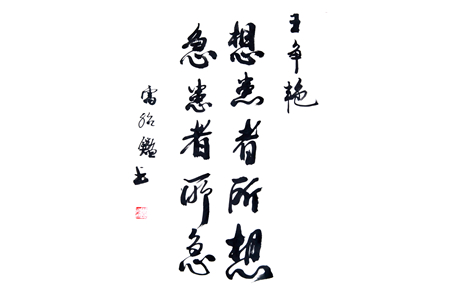 王争艳
想患者所想
急患者所急
雷 鑑书